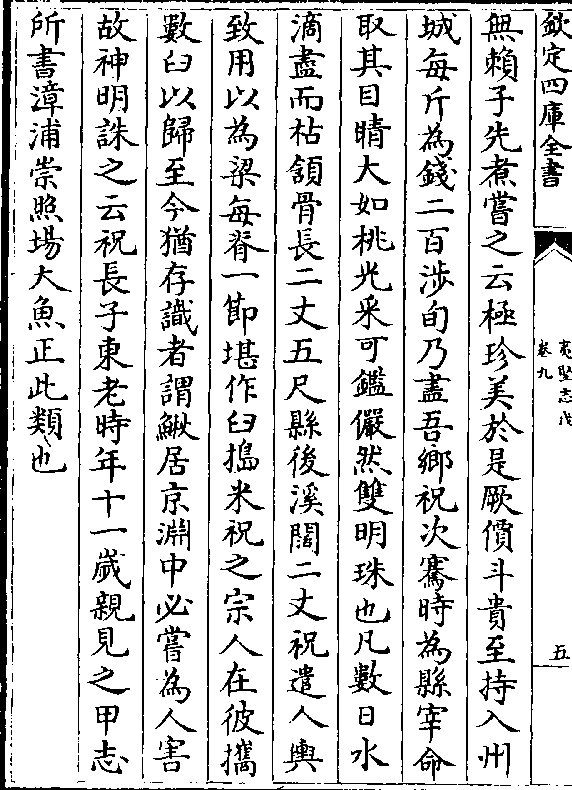 欽定四庫全書
夷堅志戊
卷九
五
無賴子先煮嘗之云極珍美於是厥價斗貴至持入州
城每斤為錢二百涉旬乃盡吾鄉祝次騫時為縣宰命
取其目睛大如桃光采可鑑儼然雙明珠也凡數日水
滴盡而枯頷骨長二丈五尺縣後溪闊二丈祝遣人輿
致用以為梁每脊一節堪作臼搗米祝之宗人在彼攜
數臼以歸至今猶存識者謂鰍居京淵中必嘗為人害
故神明誅之云祝長子東老時年十一歲親見之甲志
所書漳浦崇照場大魚正此類也